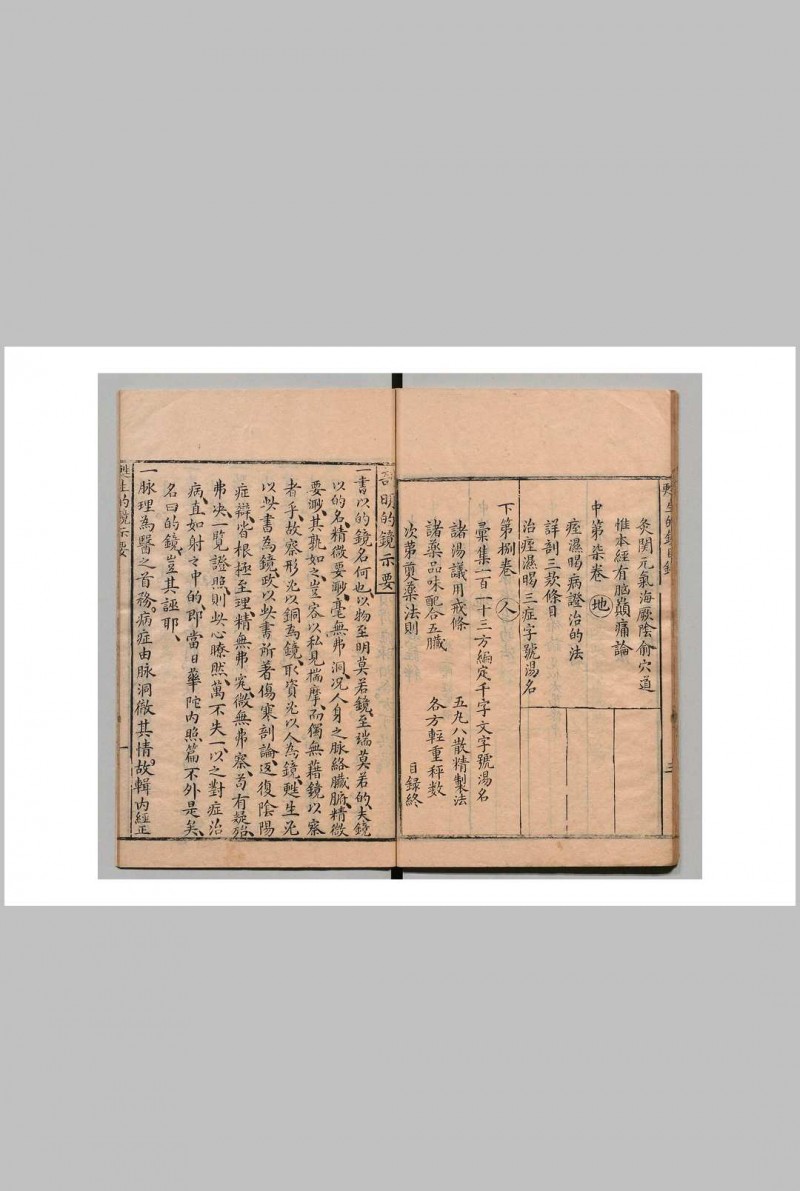 甦生的鏡目錄
三
灸関元氣海厥陰俞穴道
惟本經有腦巔痛論
中第柒卷 地
痓濕暍病證治的法
詳剖三欵條目
治痓濕暍三症字號湯名
下第捌卷 人
彚集一百一十三方編定千字文字號湯名
諸湯議用戒條 五九八散精製法
諸藥品味配合五臟 各方輕重秤数
次第煎藥法則 目録終
明的鏡示要
一書以的鏡名何也以物至明莫若鏡至瑞莫若的夫鏡
以的名精微要渺毫無弗洞况人身之脉絡臟腑精微
要渺其孰如之豈容以私見揣摩而獨無藉鏡以察
者乎故察形必以銅為鏡取資必以人為鏡甦生必
以此書為鏡政以此書所著傷寒剖論返復陰陽
症辯皆根極至理精無弗究微無弗察苟有疑殆
弗决一覽證照則此心瞭然萬不失一以之對症治
病直如射之中的即當日華陀内照篇不外是矣
名曰的鏡豈其誣耶
一脉理為醫之首務病症由脉洞微其情故輯内經正
甦生的鏡示要
一